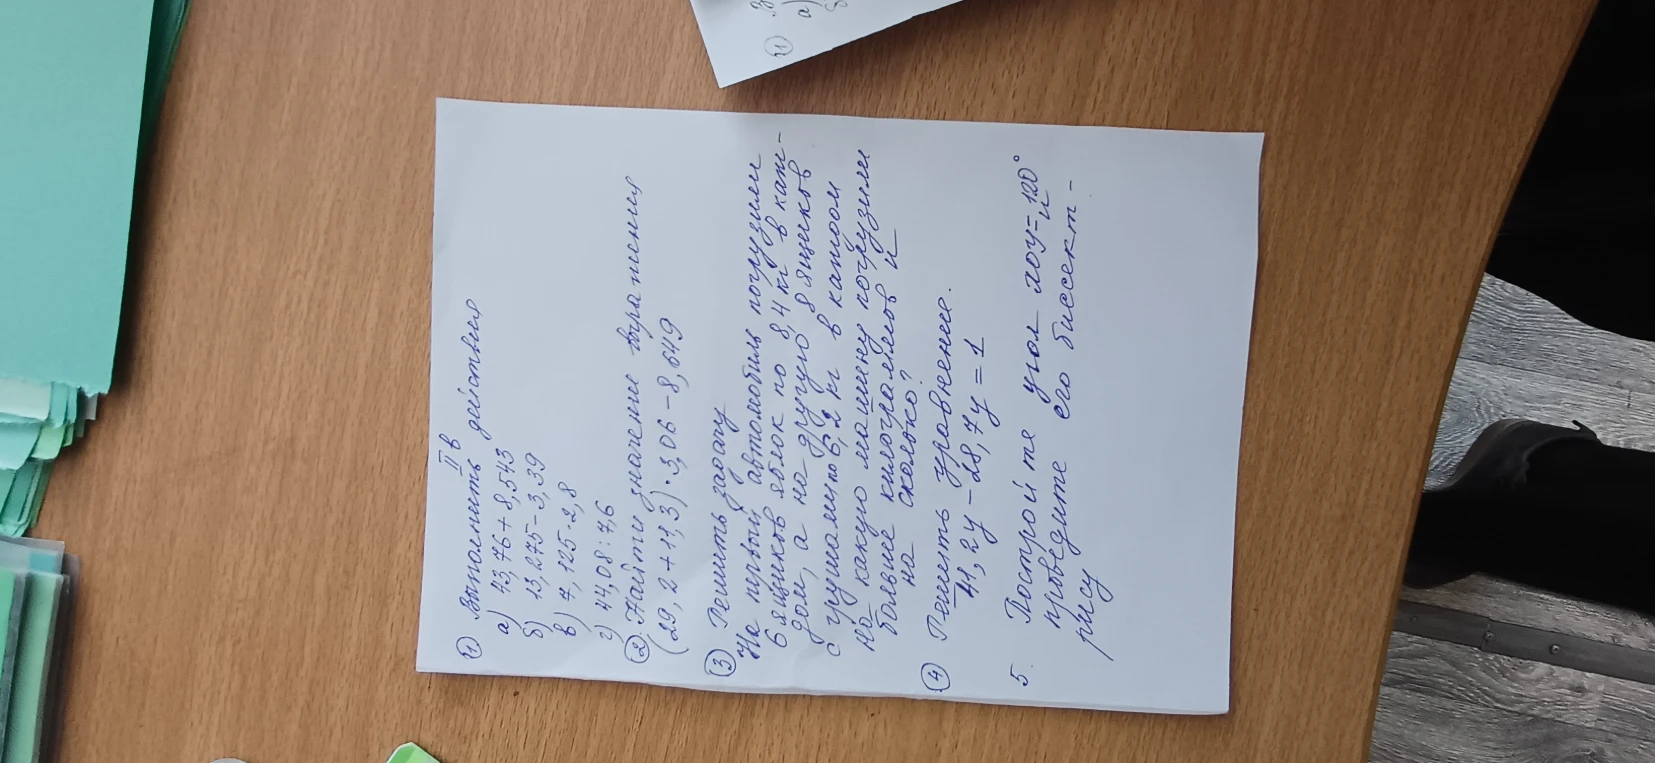 II в
① Выполнить действия
а) 43,76 + 8,543
б) 13,275 - 3,39
в) 7,125 · 2,8
г) 44,08 : 7,6
② Найти значение выражения
(29,2 + 11,3) · 3,06 - 8,649
③ Решить задачу
На первый автомобиль погрузили
6 ящиков яблок по 8,4 кг в каж-
дом, а на другую 8 ящиков
с грушами по 6,2 кг в каждом
на какую машину погрузили
больше килограммов и
на сколько?
④ Решить уравнение.
41,2y - 28,7y = 1
5. Постройте угол моу = 120° и
проведите его биссект-
рису
① В
а)
б